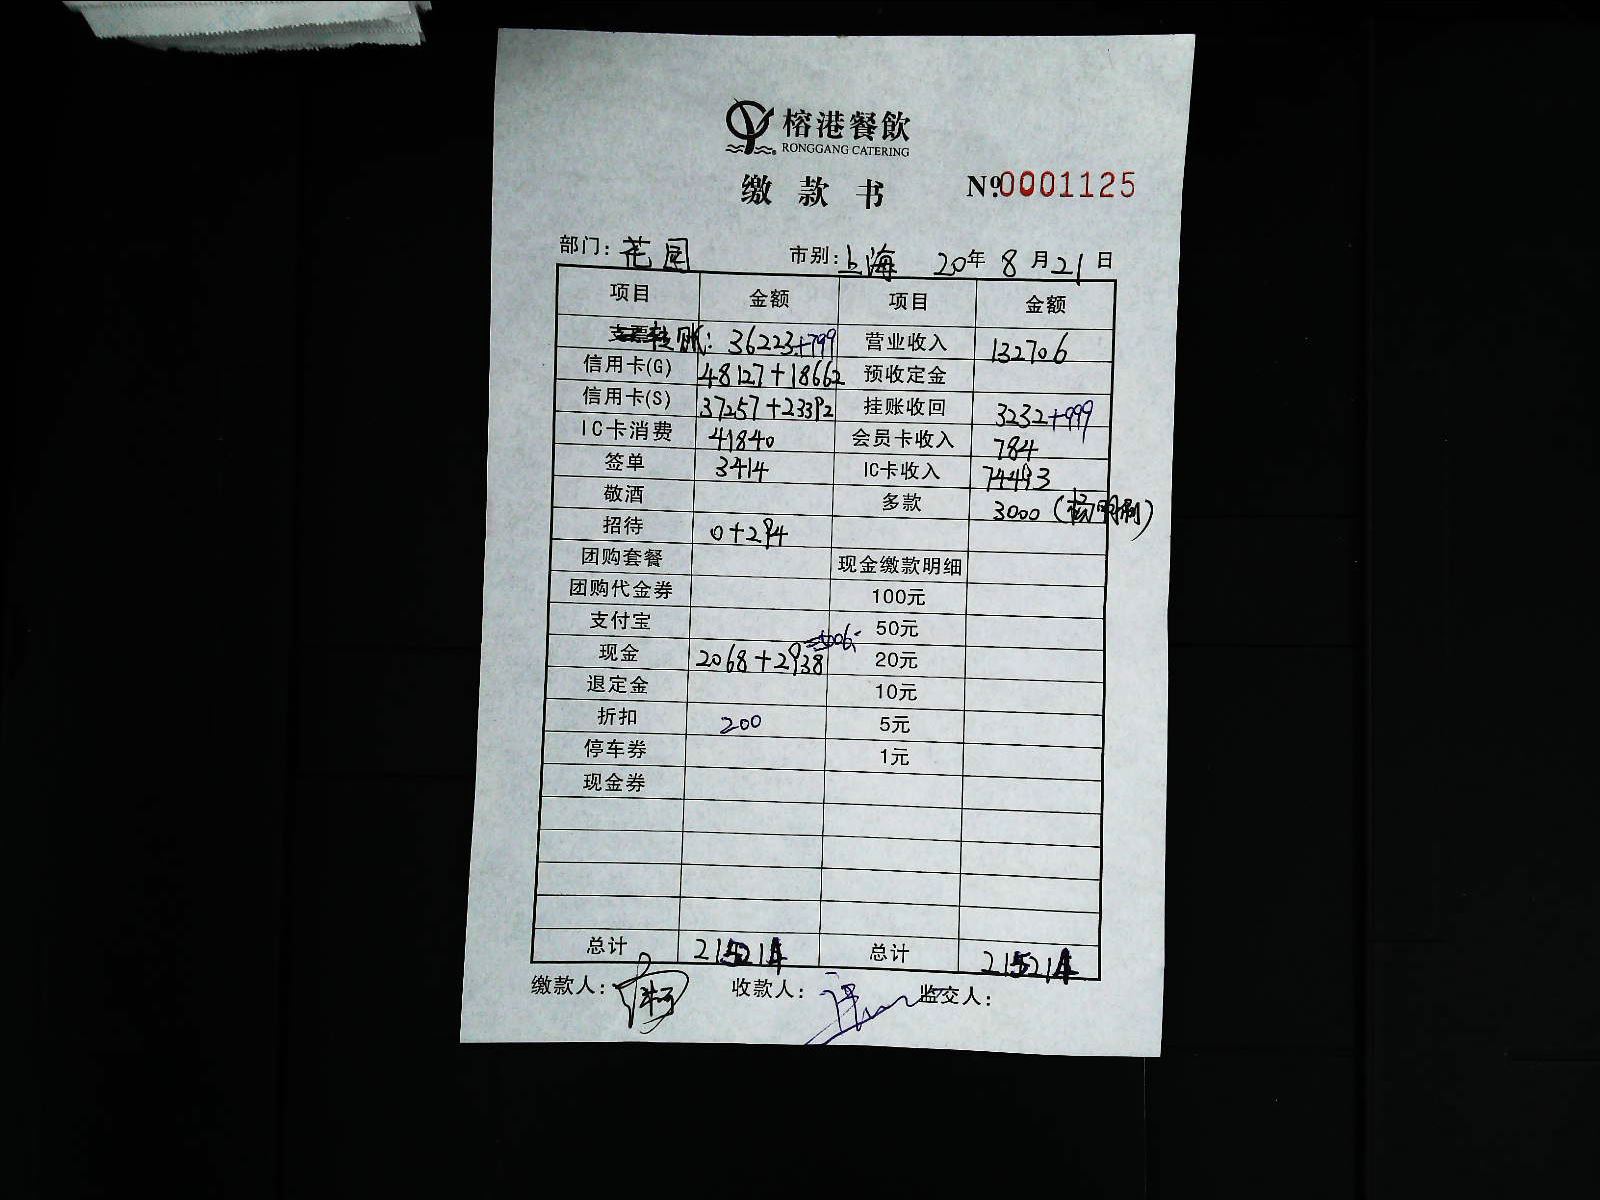 榕港餐飲
RONGGANG CATERING
缴款书 №0001125
部门: 花园 市别: 上海 20年 8月21日
项目 金额 项目 金额
转账: 36223+799 营业收入 132706
信用卡(G) 48127+18662 预收定金
信用卡(S) 37257+23392 挂账收回 3232+999
IC卡消费 41840 会员卡收入 784
签单 3414 IC卡收入 74493
敬酒 多款 3000
招待 0+294
团购套餐 现金缴款明细
团购代金券 100元
支付宝 50元
现金 2068+2938 =5006 20元
退定金 10元
折扣 200 5元
停车券 1元
现金券
总计 215214 总计 215214
缴款人: 收款人: 监交人: